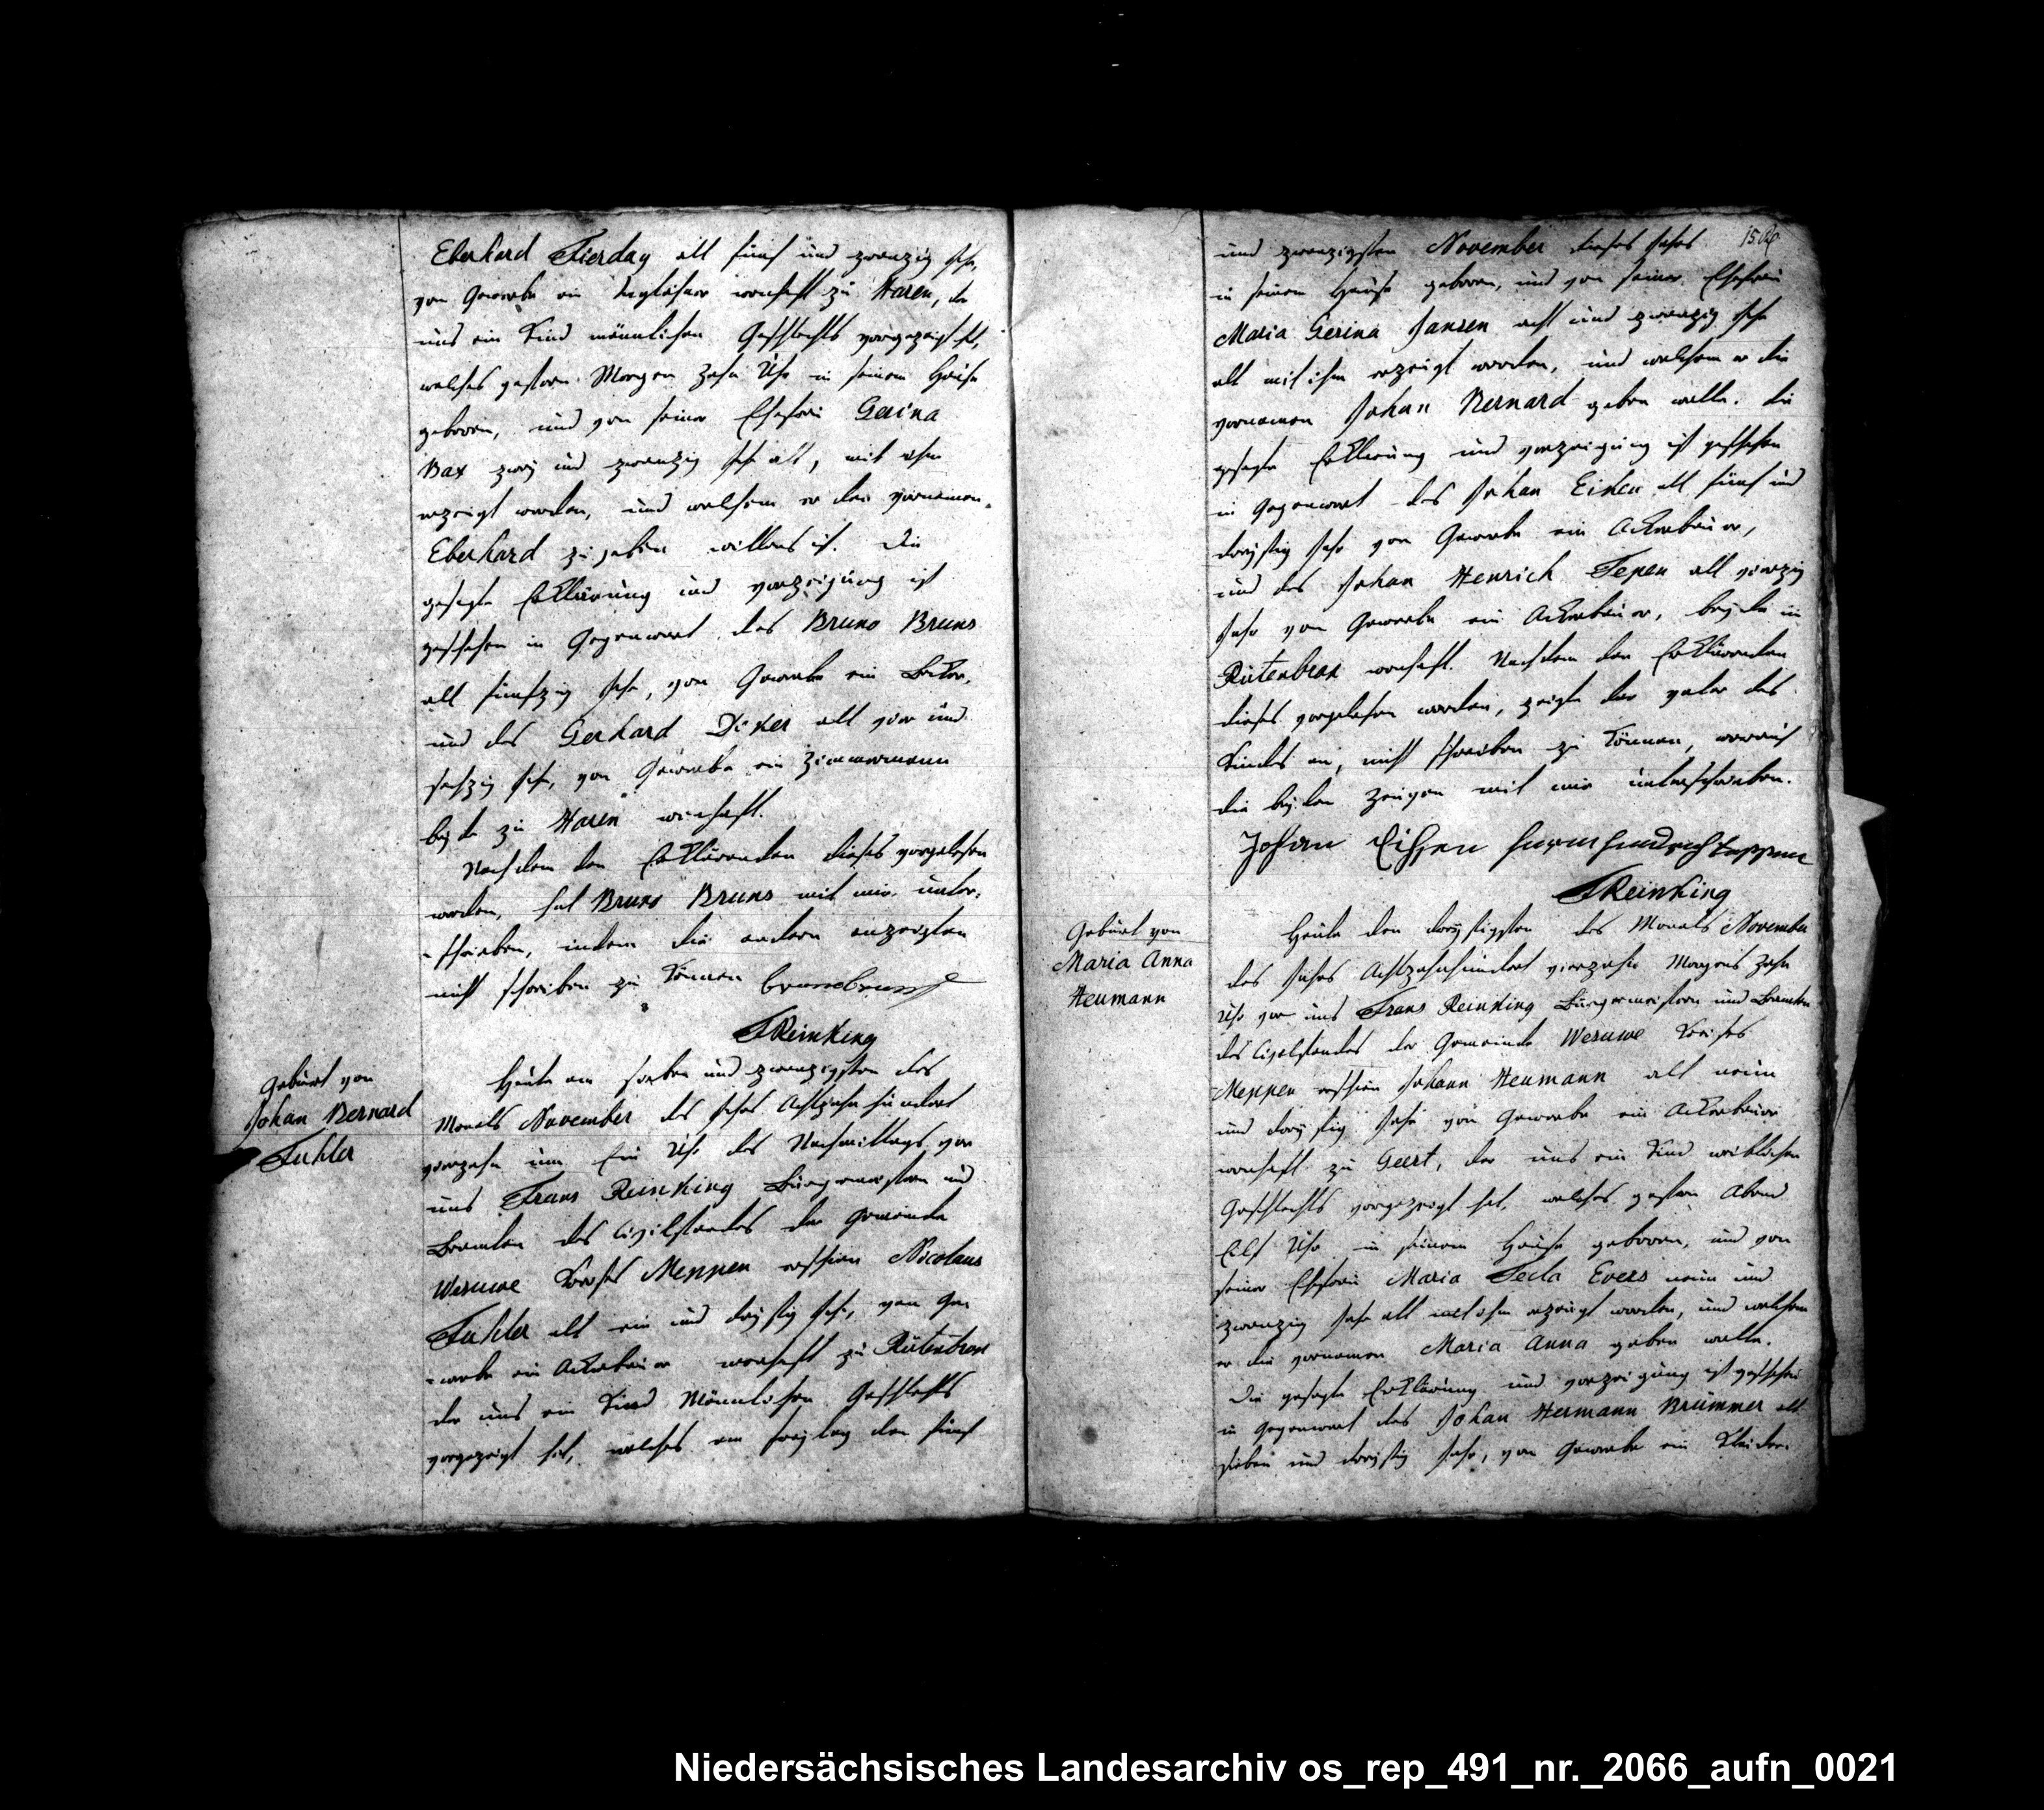 Eberhard Fierday alt fünf und zwanzig Jahr,
von Gewerbe ein Taglöhner wonhaft zu Haren, der
uns ein Kind mänlichen Geschlechts vorgezeigt hat,
welches gestern Morgen Zehn Uhr in seinem Hause
geboren, und von seiner Ehefrau Gerina
Bax zwey und zwanzig Jahr alt, mit ihm
erzeugt worden, und welchem er den vornamen
Eberhard zu geben willens ist. Die
gesagte Erklärung und vorzeigung ist
geschehen in Gegenwart des Bruno Bruns
alt fünfzig Jahr, von Gewerbe ein
und des Gerhard Diker alt vier und
sechzig Jahr, von Gewerbe ein Zimmermann
beyde zu Haren wonhaft.
Nachdem den Erklärenden dieses vorgelesen
worden, hat Bruno Bruns mit mir unter-
-schrieben, indem die andern anzeigten
nicht schreiben zu können
FReinking
Geburt von
Johan Bernard
Fuhler
Heute am sieben und zwanzigsten des
Monats November des Jahrs Achtzehn hundert
vierzehn um Ein Uhr des Nachmittags vor
uns Frans Reinking Bürgermeistern und
Beamten des Civilstandes der Gemeinde
Wesuwe Kreises Meppen erschien Nicolaus
Fuhler alt ein und dreyßig Jahr, von Ge-
-werbe ein Ackerbauer wonhaft zu Rütenbrok
der uns ein Kind Mänlichen Geschlechts
vorgezeigt hat, welches am freytag den fünf
und zwanzigsten November dieses Jahrs
in seinem Hause geboren, und von seiner Ehefrau
Maria Gerina Jansen acht und zwanzig Jahr
alt mit ihm erzeugt worden, und welchem er die
vornamen Johan Bernard geben wolle. Die
gesagte Erklärung und vorzeigung ist geschehen
in Gegenwart des Johan Eiken alt fünf und
dreyßig Jahr von Gewerbe ein Ackerbauer,
und des Johan Henrich Tepen alt vierzig
Jahr von Gewerbe ein Ackerbauer, beyde in
Rütenbrok wonhaft. Nachdem den Erklärenden
dieses vorgelesen worden, zeigte der vater des
Kindes an, nicht schreiben zu können, worauf
die beyden Zeugen mit mir unterschrieben.
Johan Eihen
FReinking
Geburt von
Maria Anna
Heumann
Heute den dreyßigsten des Monats November
des Jahres Achtzehnhundert vierzehn Morgens Zehn
Uhr vor uns Frans Reinking Bürgermeistern und Beamten
des Civilstandes der Gemeinde Wesuwe Kreises
Meppen erschien Johann Heumann alt neun
und dreyßig Jahr von Gewerbe ein Ackerbauer
wonhaft zu Geert, der uns ein Kind weiblichen
Geschlechts vorgezeigt hat, welches gestern Abend
Eilf Uhr in seinem Hause geboren, und von
seiner Ehefrau Maria Tecla Evers neun und
zwanzig Jahr alt mit ihm erzeugt worden, und welchem
er die vornamen Maria Anna geben wolle.
Die gesagte Erklärung und vorzeigung ist geschehen
in Gegenwart des Johan Hermann Brümmer alt
sieben und dreyßig Jahr, von Gewerbe ein Kleider-
Niedersächsisches Landesarchiv os_rep_491_nr._2066_aufn_0021